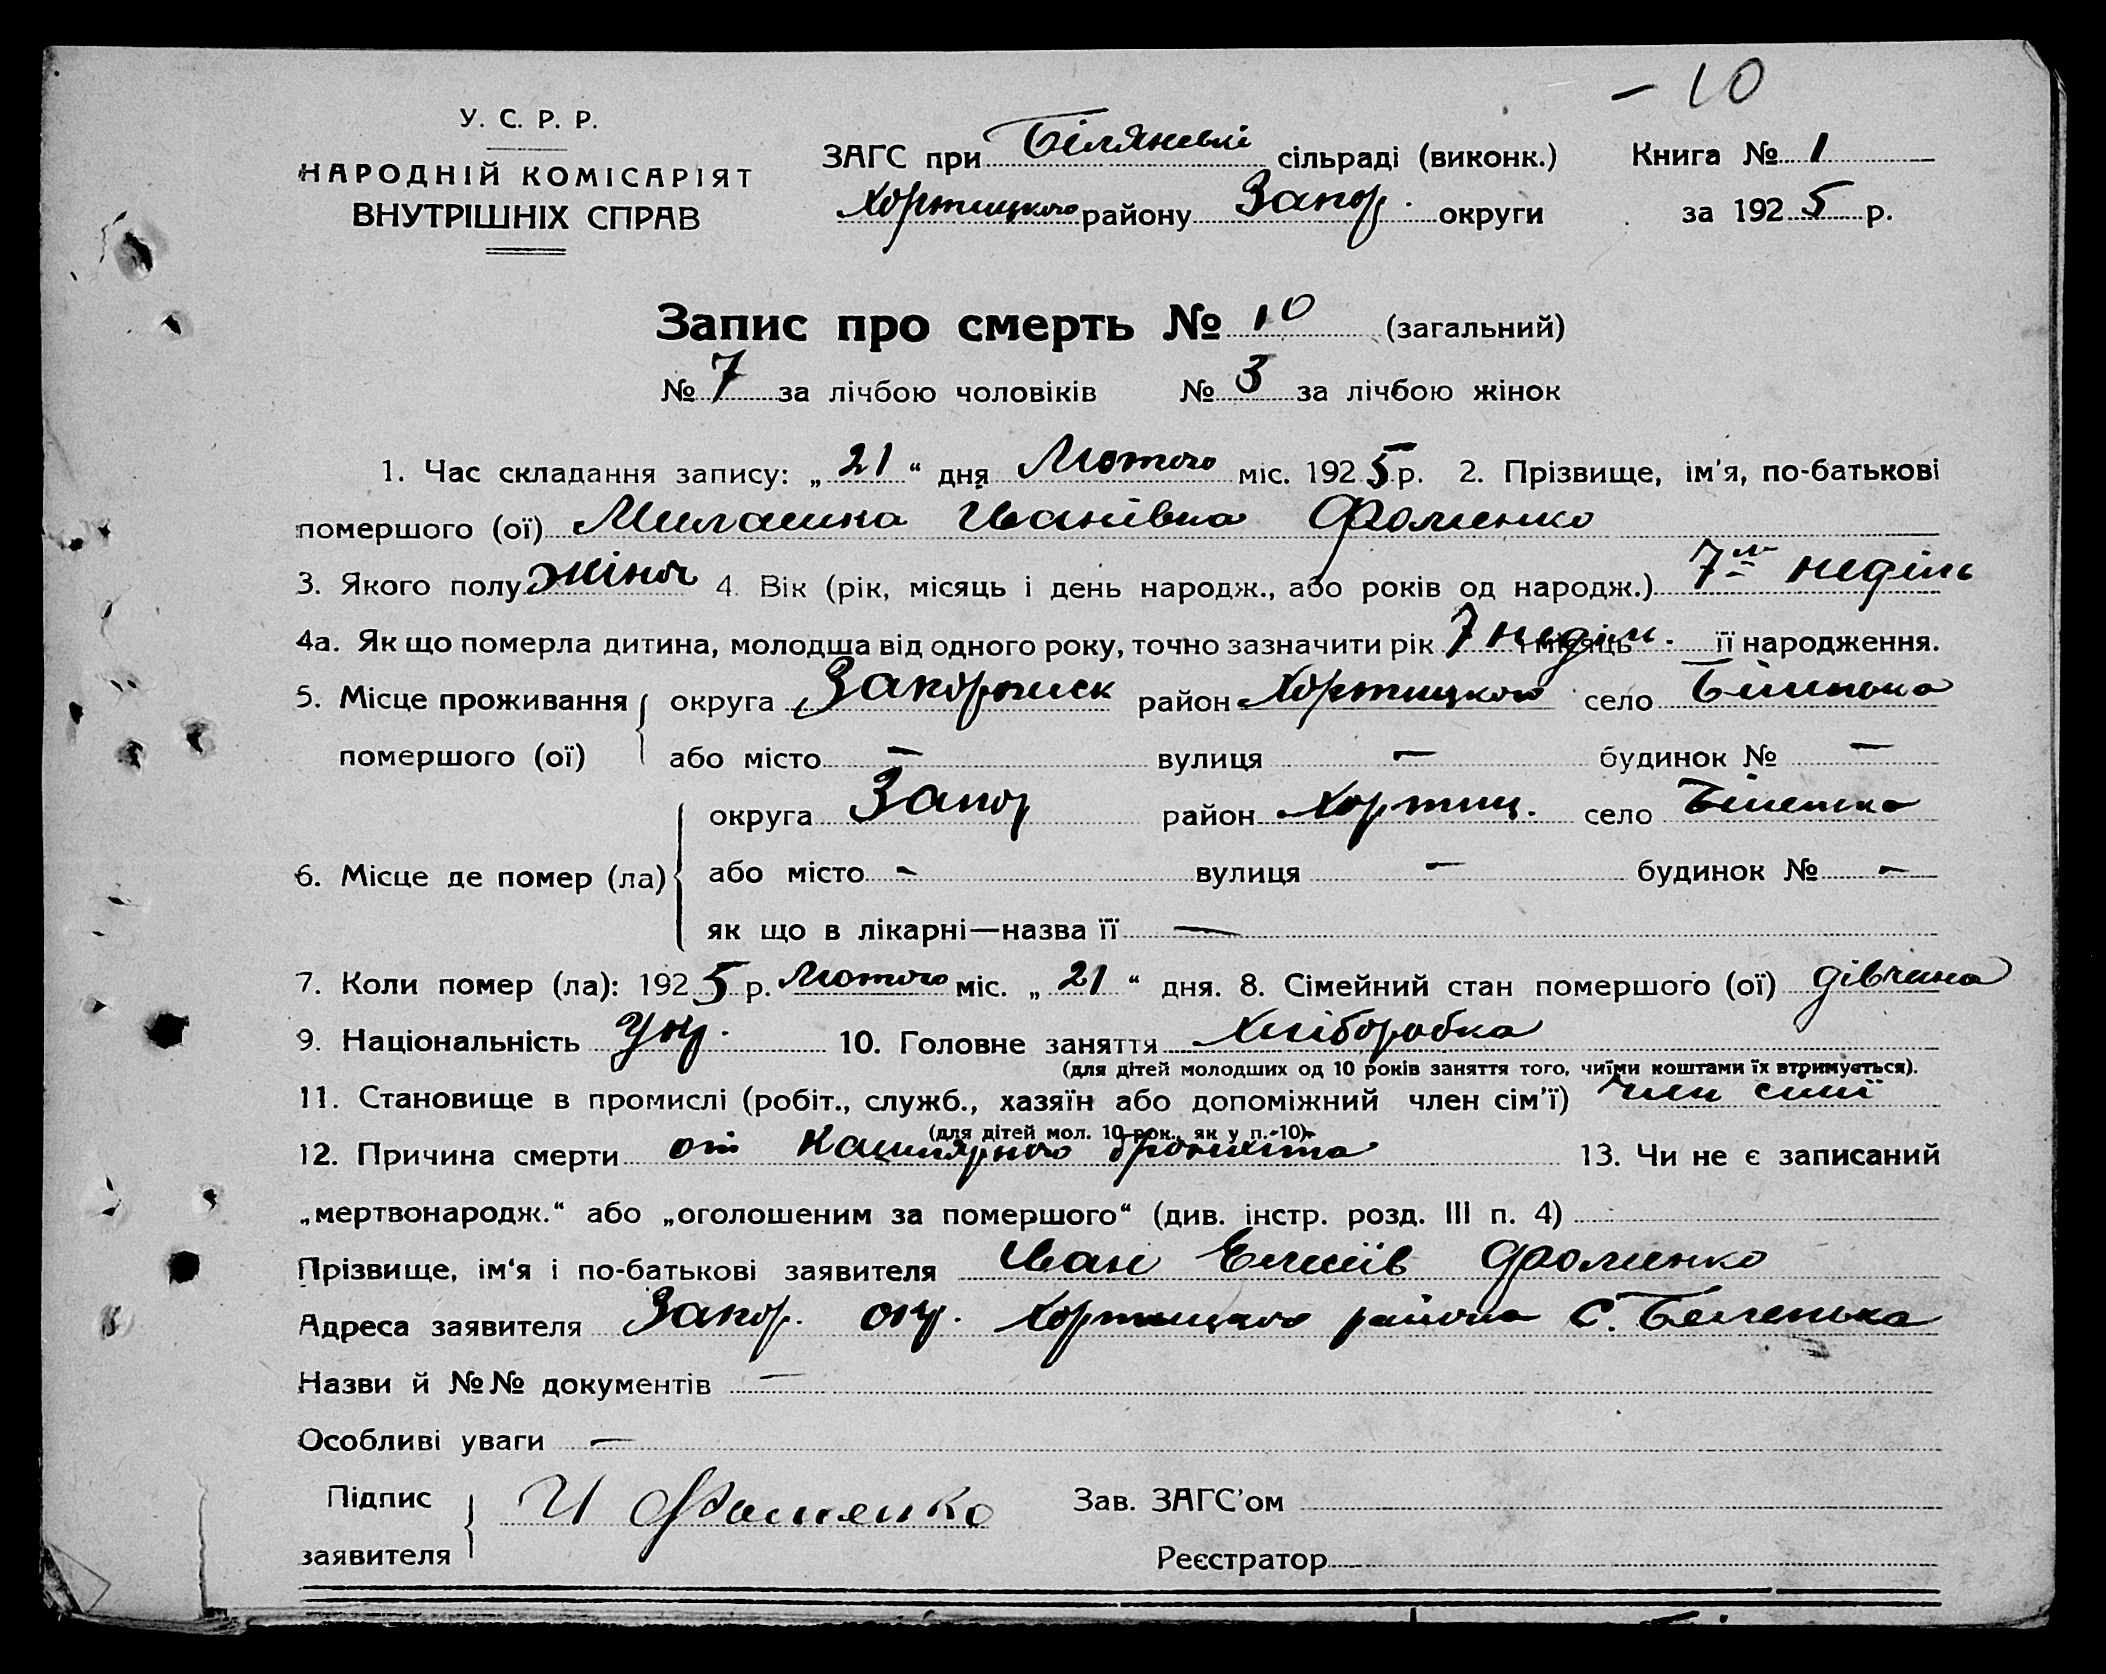 – 10
У. С. Р. Р.
НАРОДНІЙ КОМІСАРІЯТ
ВНУТРІШНІХ СПРАВ
ЗАГС при сільраді (виконк.) Книга № 1
Хортицкого району Запор. округи за 1925 р.
Запис про смерть № 10 (загальний)
№ 7 за лічбою чоловіків № 3 за лічбою жінок
1. Час складання запису: „ 21 “ дня Лютого міс. 1925 р. 2. Прізвище, ім'я, по-батькові
помершого (ої) Милашка Іванівна Фоменко
3. Якого полу жіноч 4. Вік (рік, місяць і день народж., або років од народж.) 7 неділь
4а. Як що померла дитина, молодша від одного року, точно зазначити рік 7 неділ. і місяць її народження.
5. Місце проживання округа район Хортицкого село Біленька
помершого (ої) або місто — вулиця — будинок № —
округа Запор район Хортиц. село Біленька
6. Місце де помер (ла) або місто - вулиця — будинок № -
як що в лікарні—назва її —
7. Коли помер (ла): 1925 р. Лютого міс. „ 21 “ дня. 8. Сімейний стан помершого (ої) дівчина
9. Національність Укр. 10. Головне заняття Хліборобка
(для дітей молодших од 10 років заняття того, чиїми коштами їх втримується).
11. Становище в промислі (робіт., служб., хазяїн або допоміжний член сім'ї) член сімї
(для дітей мол. 10 рок., як у п. 10)
12. Причина смерти от Капилярного бронхита 13. Чи не є записаний
„мертвонародж.“ або „оголошеним за помершого“ (див. інстр. розд. III п. 4)
Прізвище, ім'я і по-батькові заявителя Іван Фоменко
Адреса заявителя Запор. окр. Хортицкого района С. Беленька
Назви й №№ документів —
Особливі уваги —
Підпис И Фоменко Зав. ЗАГС'ом
заявителя Реєстратор